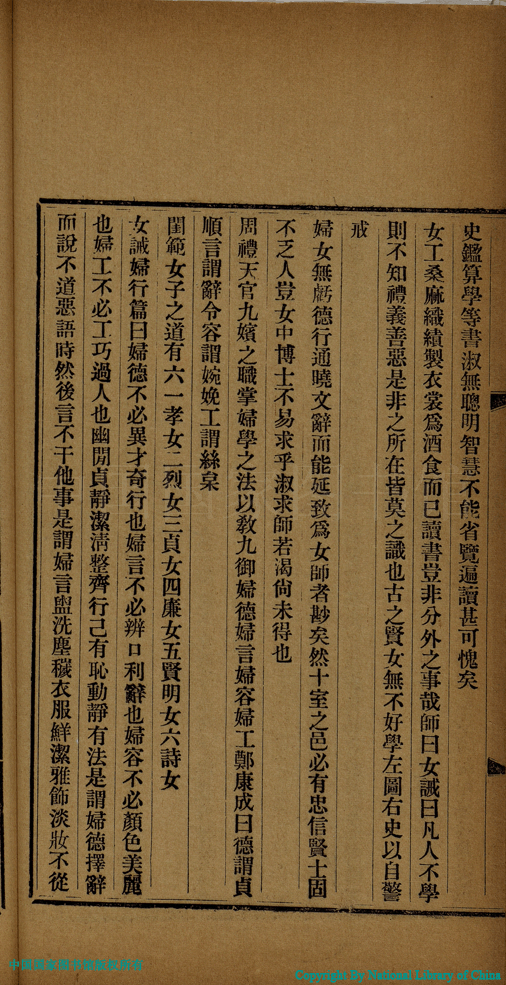 史鑑算學等書淑無聰明智慧不能省覽遍讀甚可愧矣
女工桑麻織績製衣裳爲酒食而已讀書豈非分外之事哉師曰女誡曰凡人不學
則不知禮義善惡是非之所在皆莫之識也古之賢女無不好學左圖右史以自警
戒
婦女無虧德行通曉文辭而能延致爲女師者尠矣然十室之邑必有忠信賢士固
不乏人豈女中博士不易求乎淑求師若渴尙未得也
周禮天官九嬪之職掌婦學之法以敎九御婦德婦言婦容婦工鄭康成曰德謂貞
順言謂辭令容謂婉娩工謂絲枲
閨範女子之道有六一孝女二烈女三貞女四廉女五賢明女六詩女
女誡婦行篇曰婦德不必異才奇行也婦言不必辨口利辭也婦容不必顏色美麗
也婦工不必工巧過人也幽閒貞靜潔淸整齊行己有恥動靜有法是謂婦德擇辭
而說不道惡語時然後言不干他事是謂婦言盥洗塵穢衣服鮮潔雅飾淡妝不從
Copyright By National Library of China